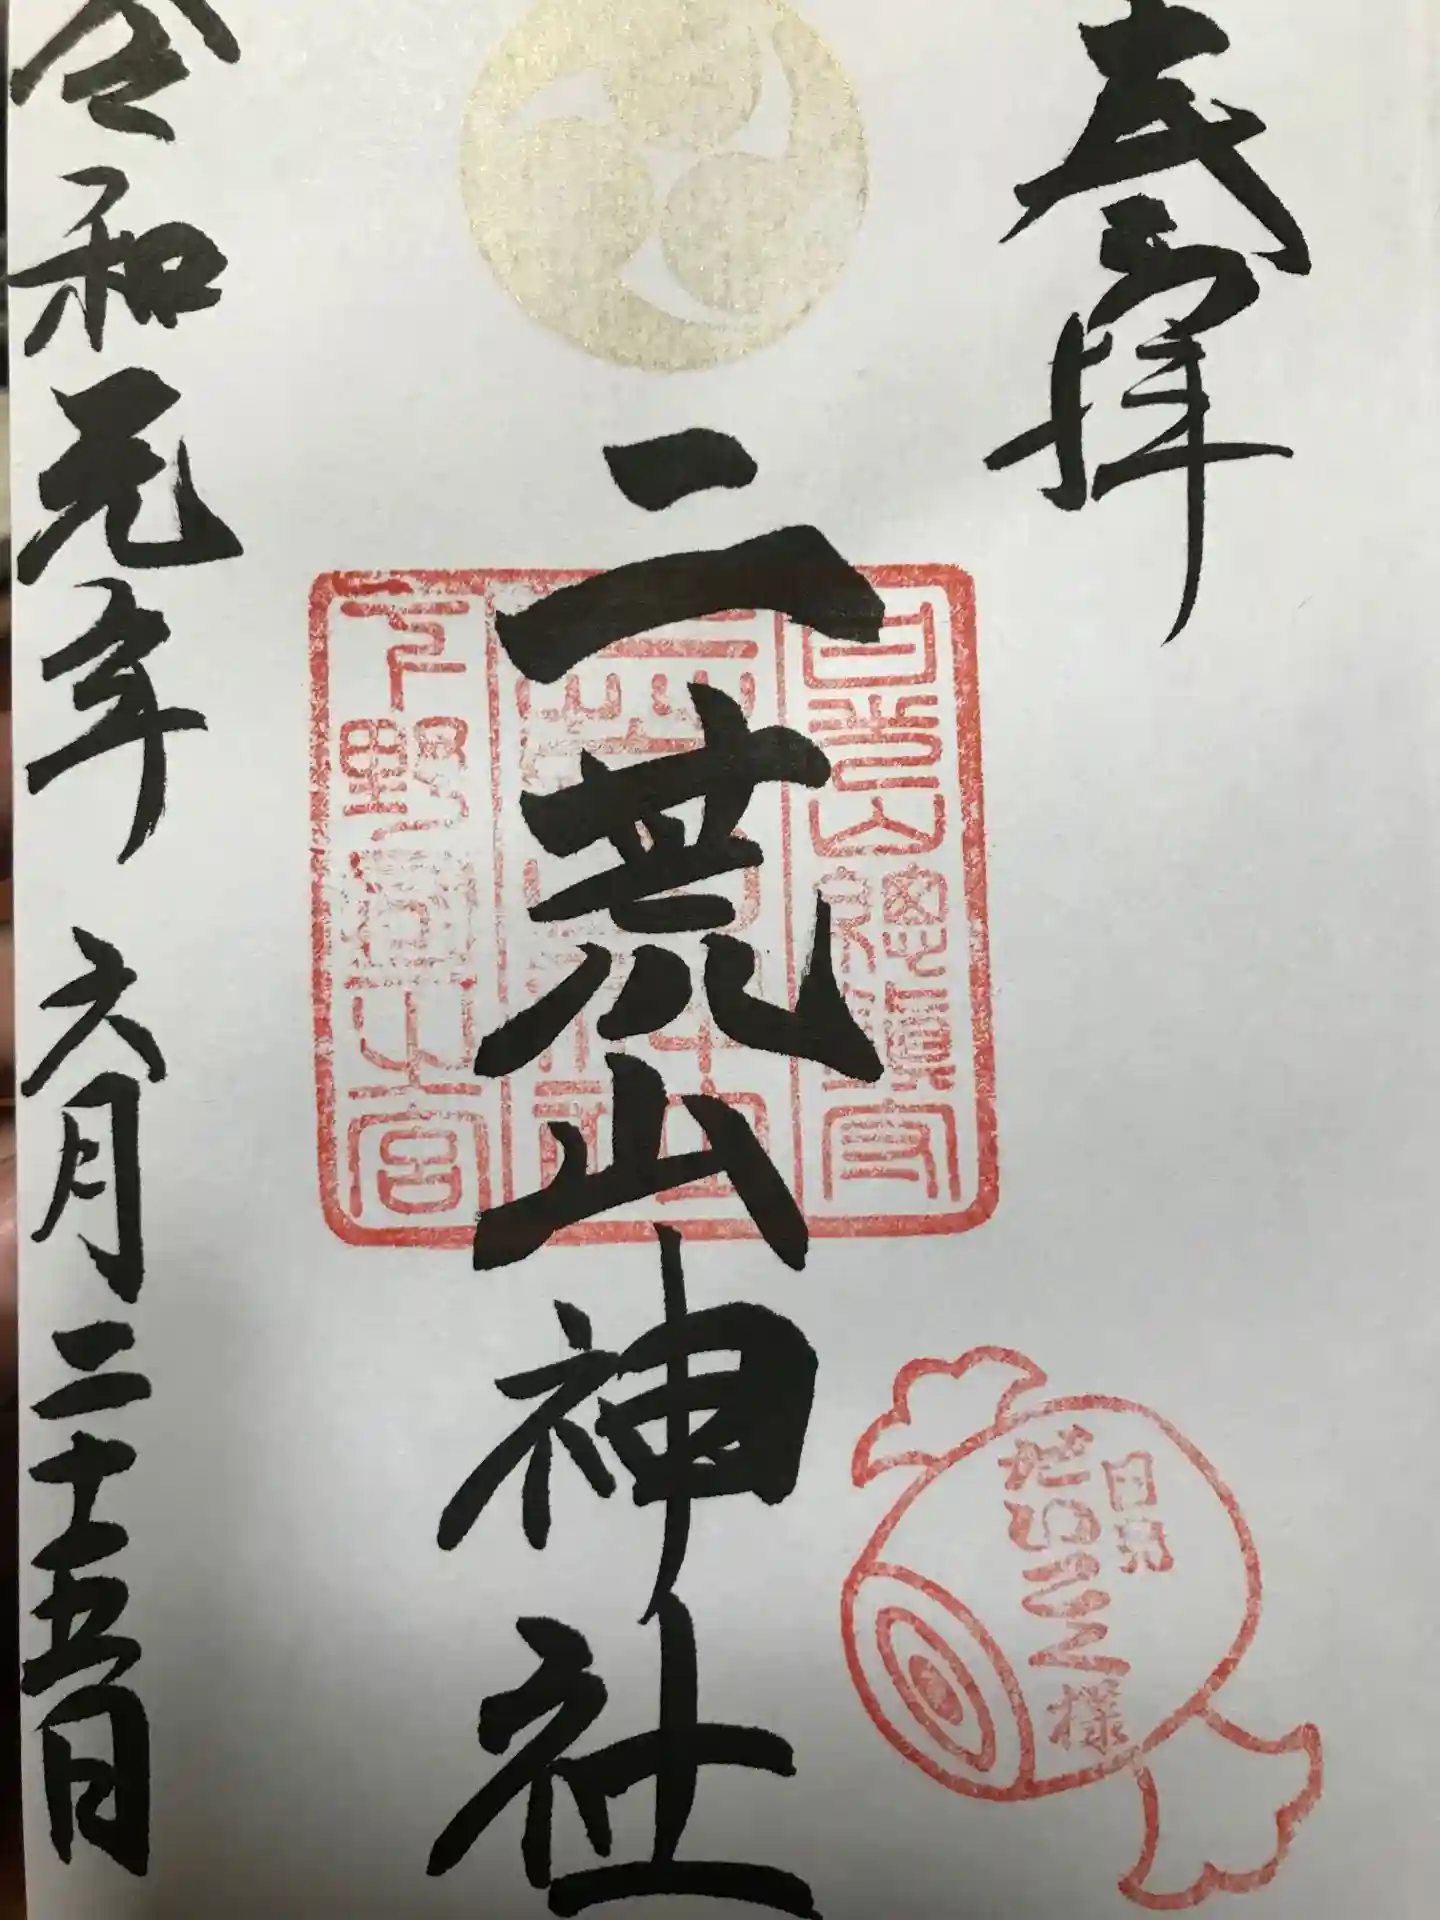 奉拝
二荒山神社
令和元年 六月二十五日
日光山総鎮守
下野国一之宮
日光
だいこく様